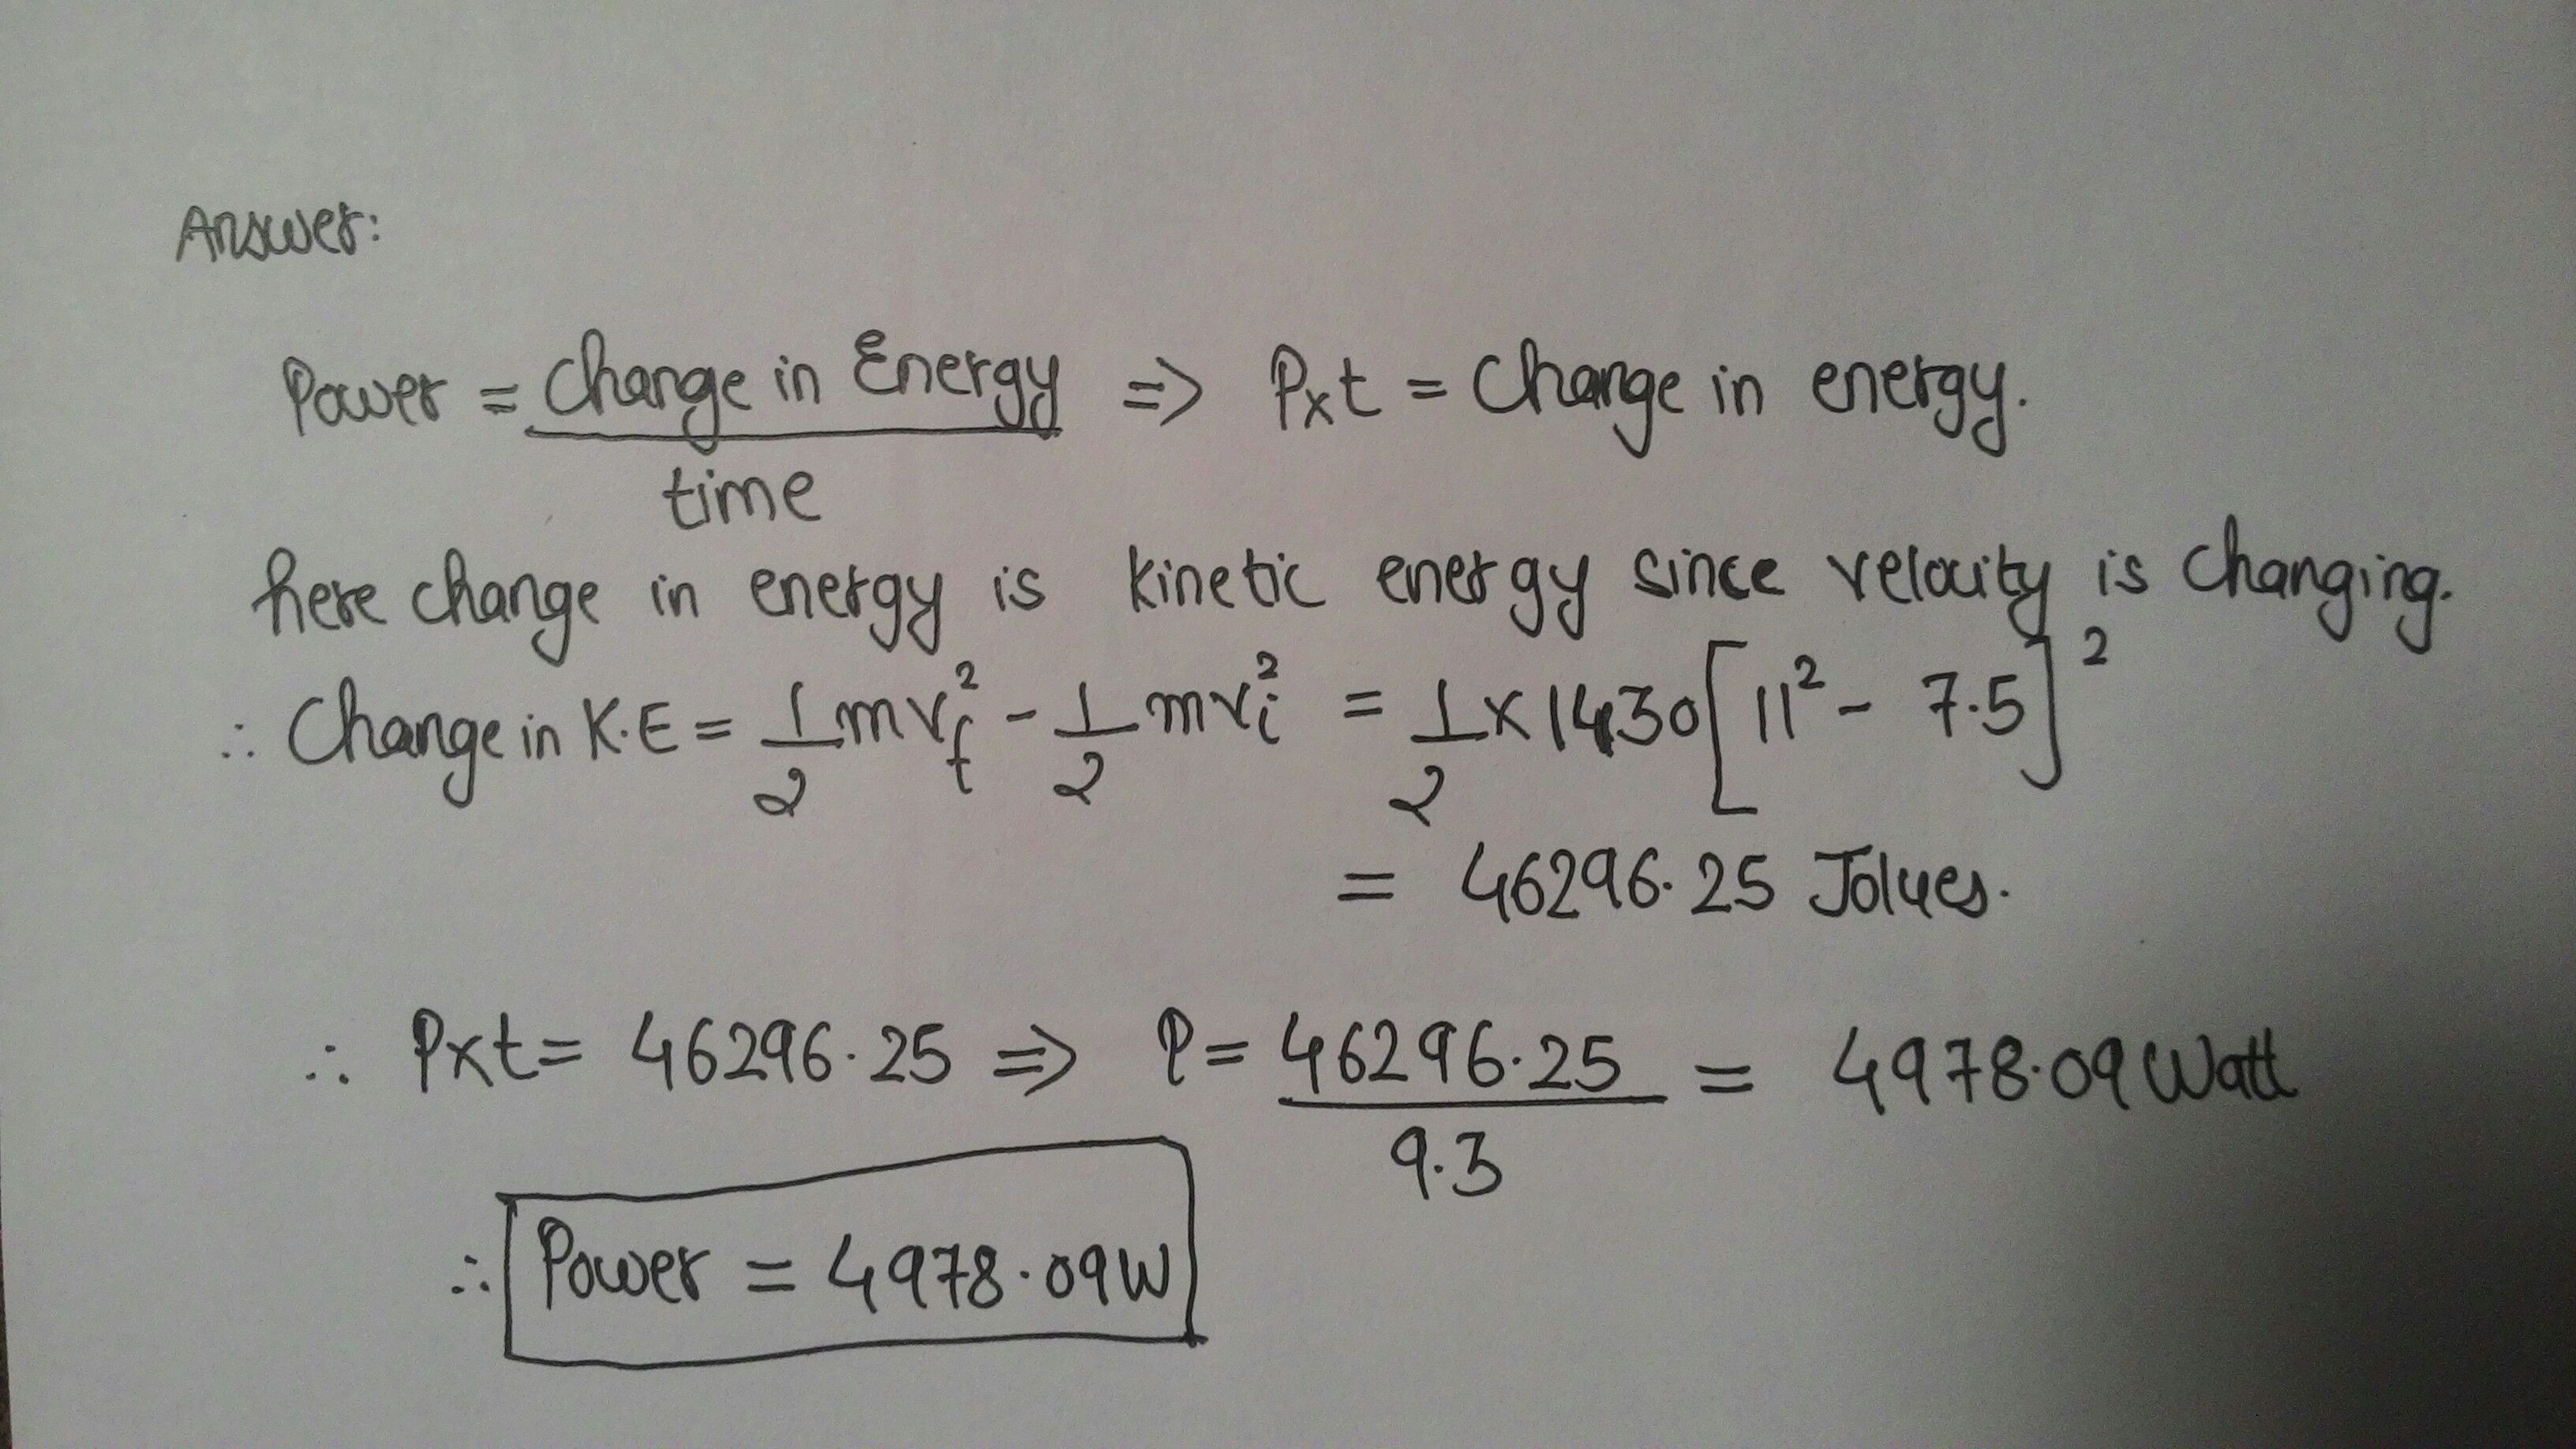 Answer:
Power = Change in Energy / time => Pxt = Change in energy.
here change in energy is kinetic energy since velocity is changing.
∴ Change in K.E = 1/2 mv_f² - 1/2 mv_i² = 1/2 x 1430 [11² - 7.5]²
= 46296.25 Jolues.
∴ Pxt = 46296.25 => P = 46296.25 / 9.3 = 4978.09 Watt
∴ Power = 4978.09W